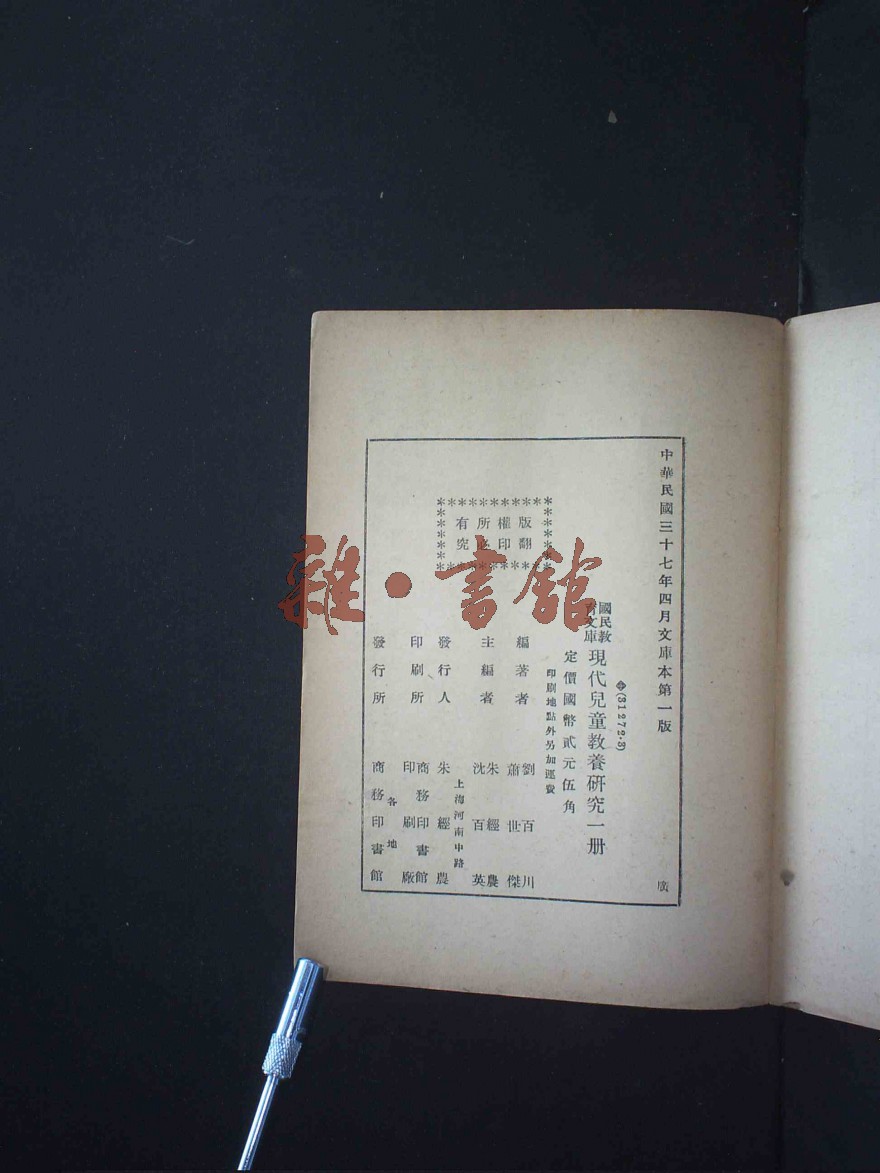 中華民國三十七年四月文庫本第一版
國民教
育文庫
現代兒童教養研究一册
(31272·3)
定價國幣貳元伍角
印刷地點外另加運費
版權所有
翻印必究
編著者 劉百川 蕭世傑
主編者 朱經農 沈百英
發行人 朱經農
上海河南中路
印刷所 商務印書館印刷廠
發行所 各地 商務印書館
廣
雜·書館